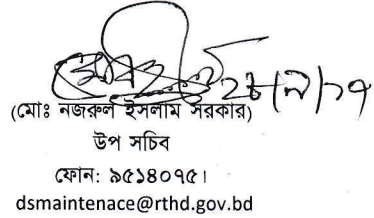 (মোঃ নজরুল ইসলাম সরকার)
উপ সচিব
ফোন: ৯৫১৪০৭৫।
dsmaintenace@rthd.gov.bd